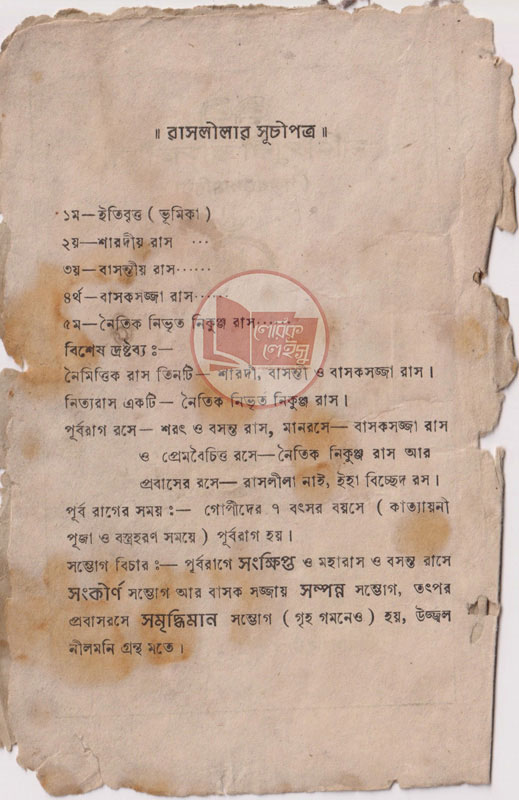 ॥ রাসলীলার সূচীপত্র ॥
১ম—ইতিবৃত্ত ( ভূমিকা )
২য়—শারদীয় রাস ...
৩য়—বাসন্তীয় রাস......
৪র্থ—বাসকসজ্জা রাস......
৫ম—নৈতিক নিভৃত নিকুঞ্জ রাস......
বিশেষ দ্রষ্টব্য ঃ—
নৈমিত্তিক রাস তিনটি— শারদী, বাসন্তী ও বাসকসজ্জা রাস।
নিত্যরাস একটি— নৈতিক নিভৃত নিকুঞ্জ রাস।
পূর্বরাগ রসে— শরৎ ও বসন্ত রাস, মানরসে— বাসকসজ্জা রাস
ও প্রেমবৈচিত্ত রসে—নৈতিক নিকুঞ্জ রাস আর
প্রবাসের রসে— রাসলীলা নাই, ইহা বিচ্ছেদ রস।
পূর্ব রাগের সময় ঃ— গোপীদের ৭ বৎসর বয়সে ( কাত্যায়নী
পূজা ও বস্ত্রহরণ সময়ে ) পূর্বরাগ হয়।
সম্ভোগ বিচার ঃ— পূর্বরাগে সংক্ষিপ্ত ও মহারাস ও বসন্ত রাসে
সংকীর্ণ সম্ভোগ আর বাসক সজ্জায় সম্পন্ন সম্ভোগ, তৎপর
প্রবাসরসে সমৃদ্ধিমান সম্ভোগ ( গৃহ গমনেও ) হয়, উজ্জ্বল
নীলমনি গ্রন্থ মতে।
পৌরিক
পেইসু